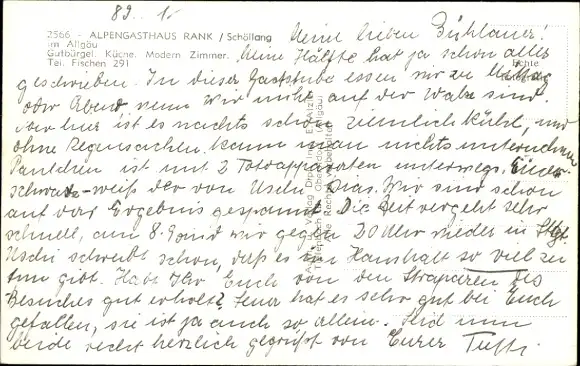 89.- 1.-
2566 - ALPENGASTHAUS RANK / Schöllang
im Allgäu
Gutbürgel. Küche. Modern Zimmer.
Tel. Fischen 291
Echte
Meine lieben Bühlauer!
Meine Hälfte hat ja schon alles
geschrieben. In dieser Gaststube essen wir zu Mittag
oder Abend wenn wir nicht auf der Walze sind
aber hier ist es nachts schon ziemlich kühl, und
ohne Regensachen kann man nichts unternehmen
Paulchen ist mit 2 Fotoapparaten unterwegs. Einer
schwarz-weiß der von Uschi Dias. Wir sind schon
auf das Ergebnis gespannt. Die Zeit vergeht sehr
schnell, am 8. sind wir gegen 20 Uhr wieder in Stgt.
Uschi schreibt schon, daß es im Haushalt so viel zu
tun gibt. Habt Ihr Euch von den Strapazen des
Besuches gut erholt? hat es sehr gut bei Euch
gefallen, sie ist ja auch so allein. Seid nun
beide recht herzlich gegrüßt von Eurer